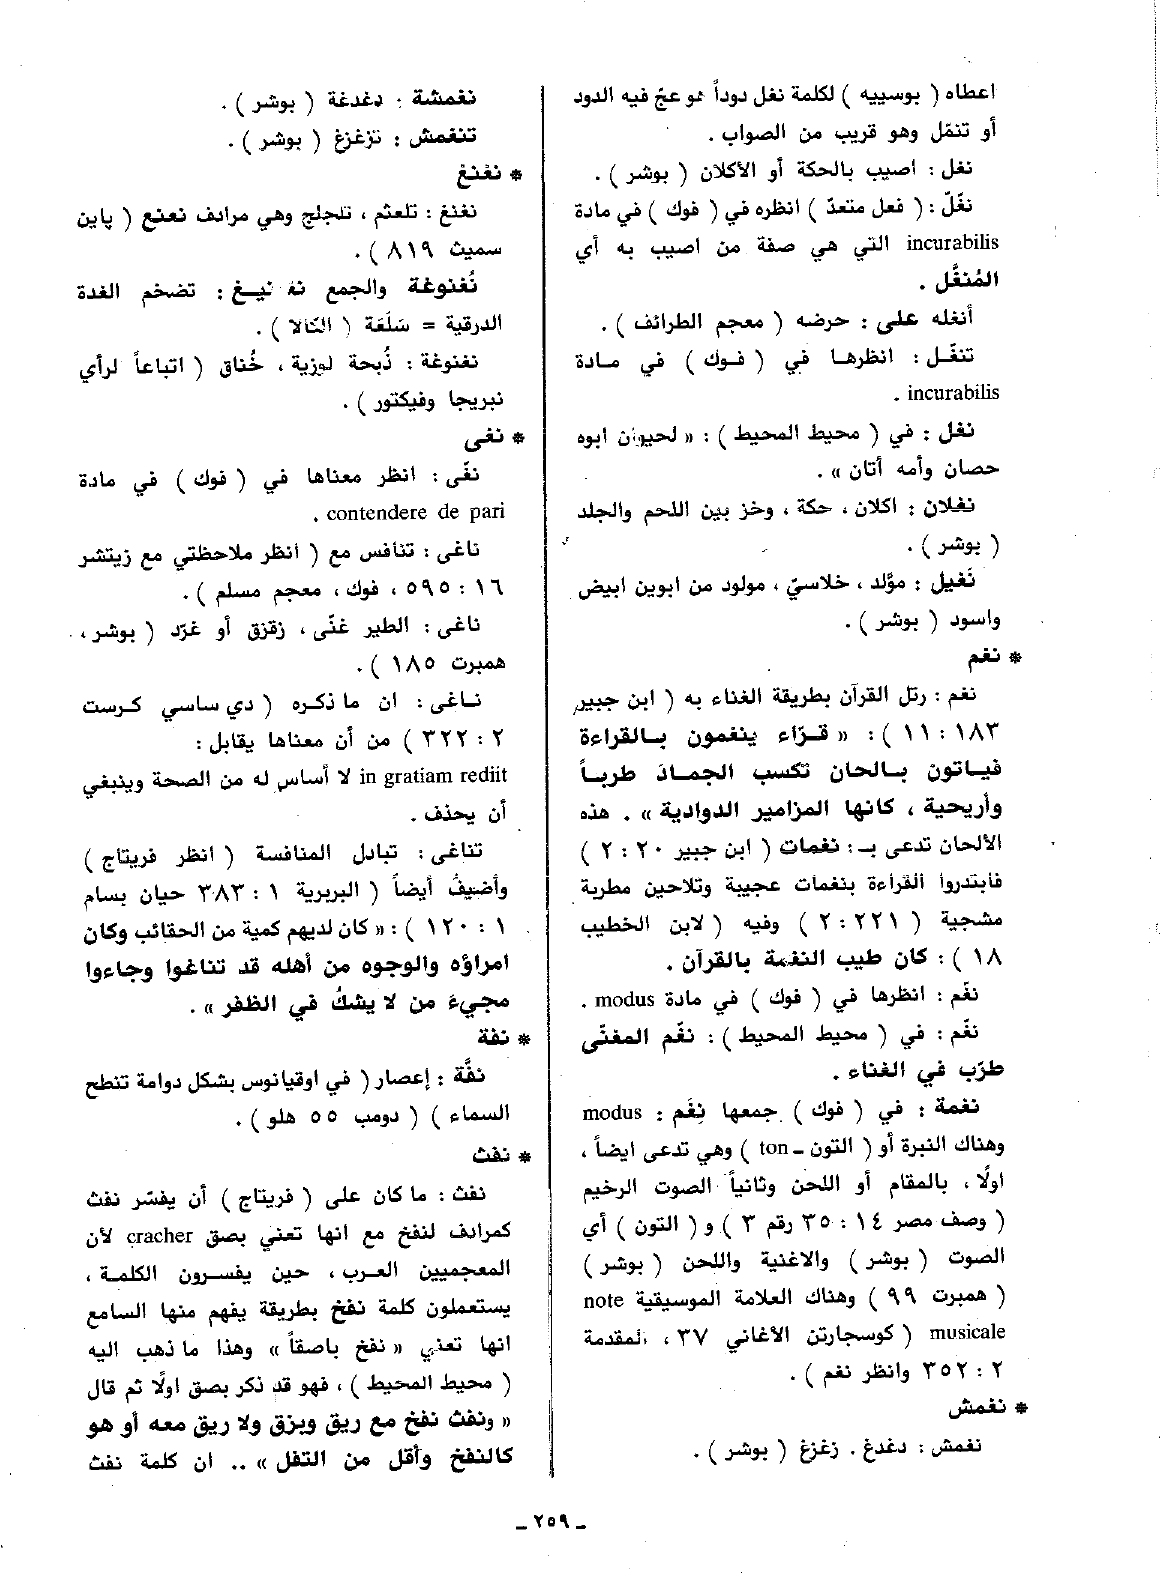 اعطاه ( بوسييه ) لكلمة نغل دوداً هو عجّ فيه الدود
أو تنمّل وهو قريب من الصواب .
نغل : اصيب بالحكة أو الأكلان ( بوشر ) .
نغّل : ( فعل متعدّ ) انظره في ( فوك ) في مادة
incurabilis التي هي صفة من اصيب به أي
المُنغَّل .
أنغله على : حرضه ( معجم الطرائف ) .
تنغّل : انظرها في ( فوك ) في مادة
incurabilis .
نغل : في ( محيط المحيط ) : « لحيوان ابوه
حصان وأمه أتان » .
نغلان : اكلان ، حكة ، وخز بين اللحم والجلد
( بوشر ) .
نَغيل : مؤلد ، خلاسيّ ، مولود من ابوين ابيض
واسود ( بوشر ) .
* نغم
نغم : رتل القرآن بطريقة الغناء به ( ابن جبير
١٨٣ : ١١ ) : « قرّاء ينغمون بالقراءة
فياتون بالحان تكسب الجماد طرباً
وأريحية ، كانها المزامير الدوادية » . هذه
الألحان تدعى بـ : نغمات ( ابن جبير ٢٠ : ٢ )
فابتدروا القراءة بنغمات عجيبة وتلاحين مطربة
مشجية ( ٢٢١ : ٢ ) وفيه ( لابن الخطيب
١٨ ) : كان طيب النغمة بالقرآن .
نغّم : انظرها في ( فوك ) في مادة modus .
نغّم : في ( محيط المحيط ) : نغّم المغنّي
طرّب في الغناء .
نغمة : في ( فوك ) جمعها نِغَم : modus
وهناك النبرة أو ( التون ـ ton ) وهي تدعى ايضاً ،
اولًا ، بالمقام أو اللحن وثانياً الصوت الرخيم
( وصف مصر ١٤ : ٣٥ رقم ٣ ) و ( التون ) أي
الصوت ( بوشر ) والاغنية واللحن ( بوشر )
( همبرت ٩٩ ) وهناك العلامة الموسيقية note
musicale ( كوسجارتن الأغاني ٣٧ ، المقدمة
٢ : ٣٥٢ وانظر نغم ) .
* نغمش
نغمش : دغدغ . زغزغ ( بوشر ) .
نغمشة : دغدغة ( بوشر ) .
تنغمش : تزغزغ ( بوشر ) .
* نغنغ
نغنغ : تلعثم ، تلجلج وهي مرادف نعنع ( پاين
سميث ٨١٩ ) .
نُغنوغة والجمع نغانيغ : تضخم الغدة
الدرقية = سَلَعَة ( الكالا ) .
نغنوغة : ذُبحة لوزية ، خُناق ( اتباعاً لرأي
نبريجا وفيكتور ) .
* نغى
نغّى : انظر معناها في ( فوك ) في مادة
contendere de pari .
ناغى : تنافس مع ( انظر ملاحظتي مع زيتشر
١٦ : ٥٩٥ ، فوك ، معجم مسلم ) .
ناغى : الطير غنّى ، زقزق أو غرّد ( بوشر ،
همبرت ١٨٥ ) .
ناغى : ان ما ذكره ( دي ساسي كرست
٢ : ٣٢٢ ) من أن معناها يقابل :
in gratiam rediit لا أساس له من الصحة وينبغي
أن يحذف .
تناغى : تبادل المنافسة ( انظر فريتاج )
وأضيفُ أيضاً ( البربرية ١ : ٣٨٣ حيان بسام
١ : ١٢٠ ) : « كان لديهم كمية من الحقائب وكان
امراؤه والوجوه من أهله قد تناغوا وجاءوا
مجيءَ من لا يشكُ في الظفر » .
* نفة
نفَّة : إعصار ( في اوقيانوس بشكل دوامة تنطح
السماء ) ( دومب ٥٥ هلو ) .
* نفث
نفث : ما كان على ( فريتاج ) أن يفسّر نفث
كمرادف لنفخ مع انها تعني بصق cracher لأن
المعجميين العرب ، حين يفسرون الكلمة ،
يستعملون كلمة نفخ بطريقة يفهم منها السامع
انها تعني « نفخ باصقاً » وهذا ما ذهب اليه
( محيط المحيط ) ، فهو قد ذكر بصق اولًا ثم قال
« ونفث نفخ مع ريق ويزق ولا ريق معه أو هو
كالنفخ وأقل من التفل » .. ان كلمة نفث
ـ ٢٥٩ ـ